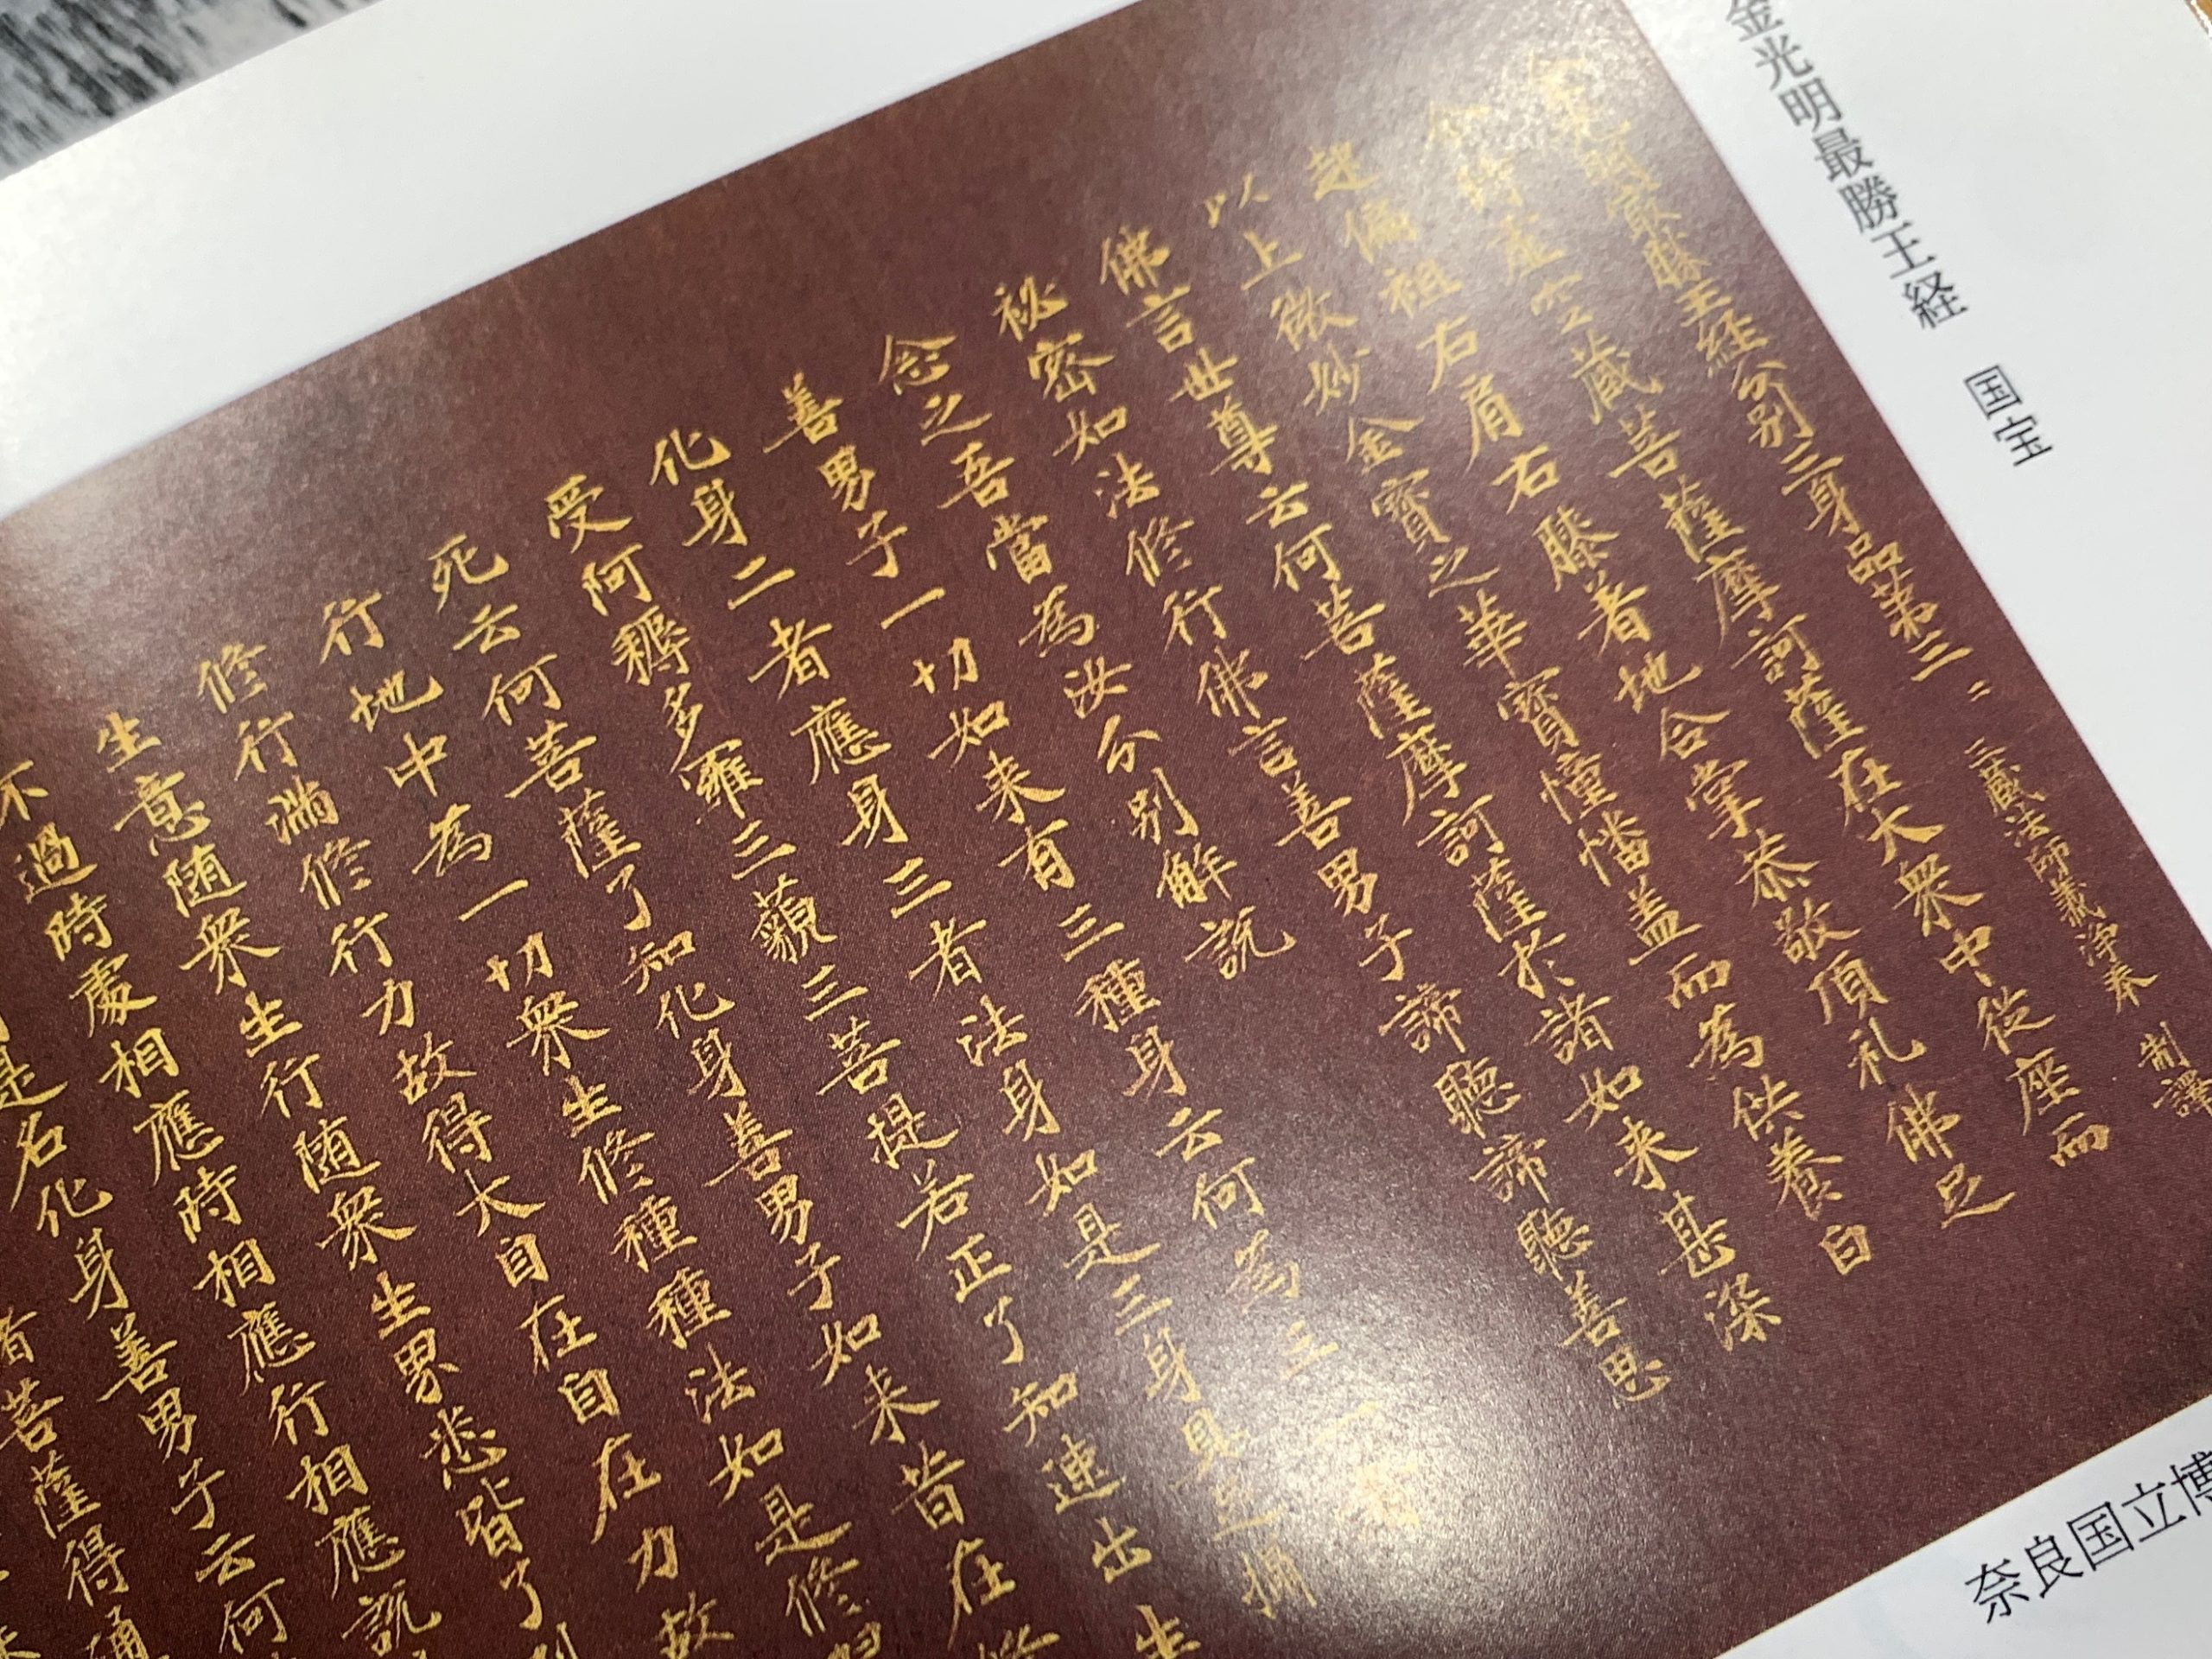 金光明最勝王経　国宝
金光明最勝王経分別三身品第三 二 三蔵法師義浄奉 制譯
尒時虚空蔵菩薩摩訶薩在大衆中従座而
起偏袒右肩右膝著地合掌恭敬頂礼佛足
以上微妙金寶之華寶幢幡盖而為供養白
佛言世尊云何菩薩摩訶薩於諸如来甚深
秘密如法修行佛言善男子諦聴諦聴善思
念之吾當為汝分別解説
善男子一切如来有三種身云何為三一者
化身二者應身三者法身如是三身具足攝
受阿耨多羅三藐三菩提若正了知速出生
死云何菩薩了知化身善男子如来昔在修
行地中為一切衆生修種種法如是修習
修行満修行力故得大自在自在力故
生意随衆生行随衆生界悉皆了別
不過時處相應時相應行相應説
是名化身善男子云何
者菩薩得
奈良国立博